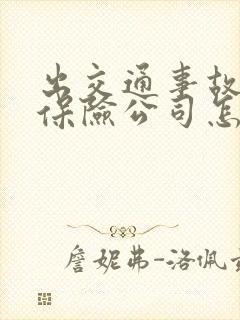 出交通事故
保險公司怎
詹妮弗-洛佩